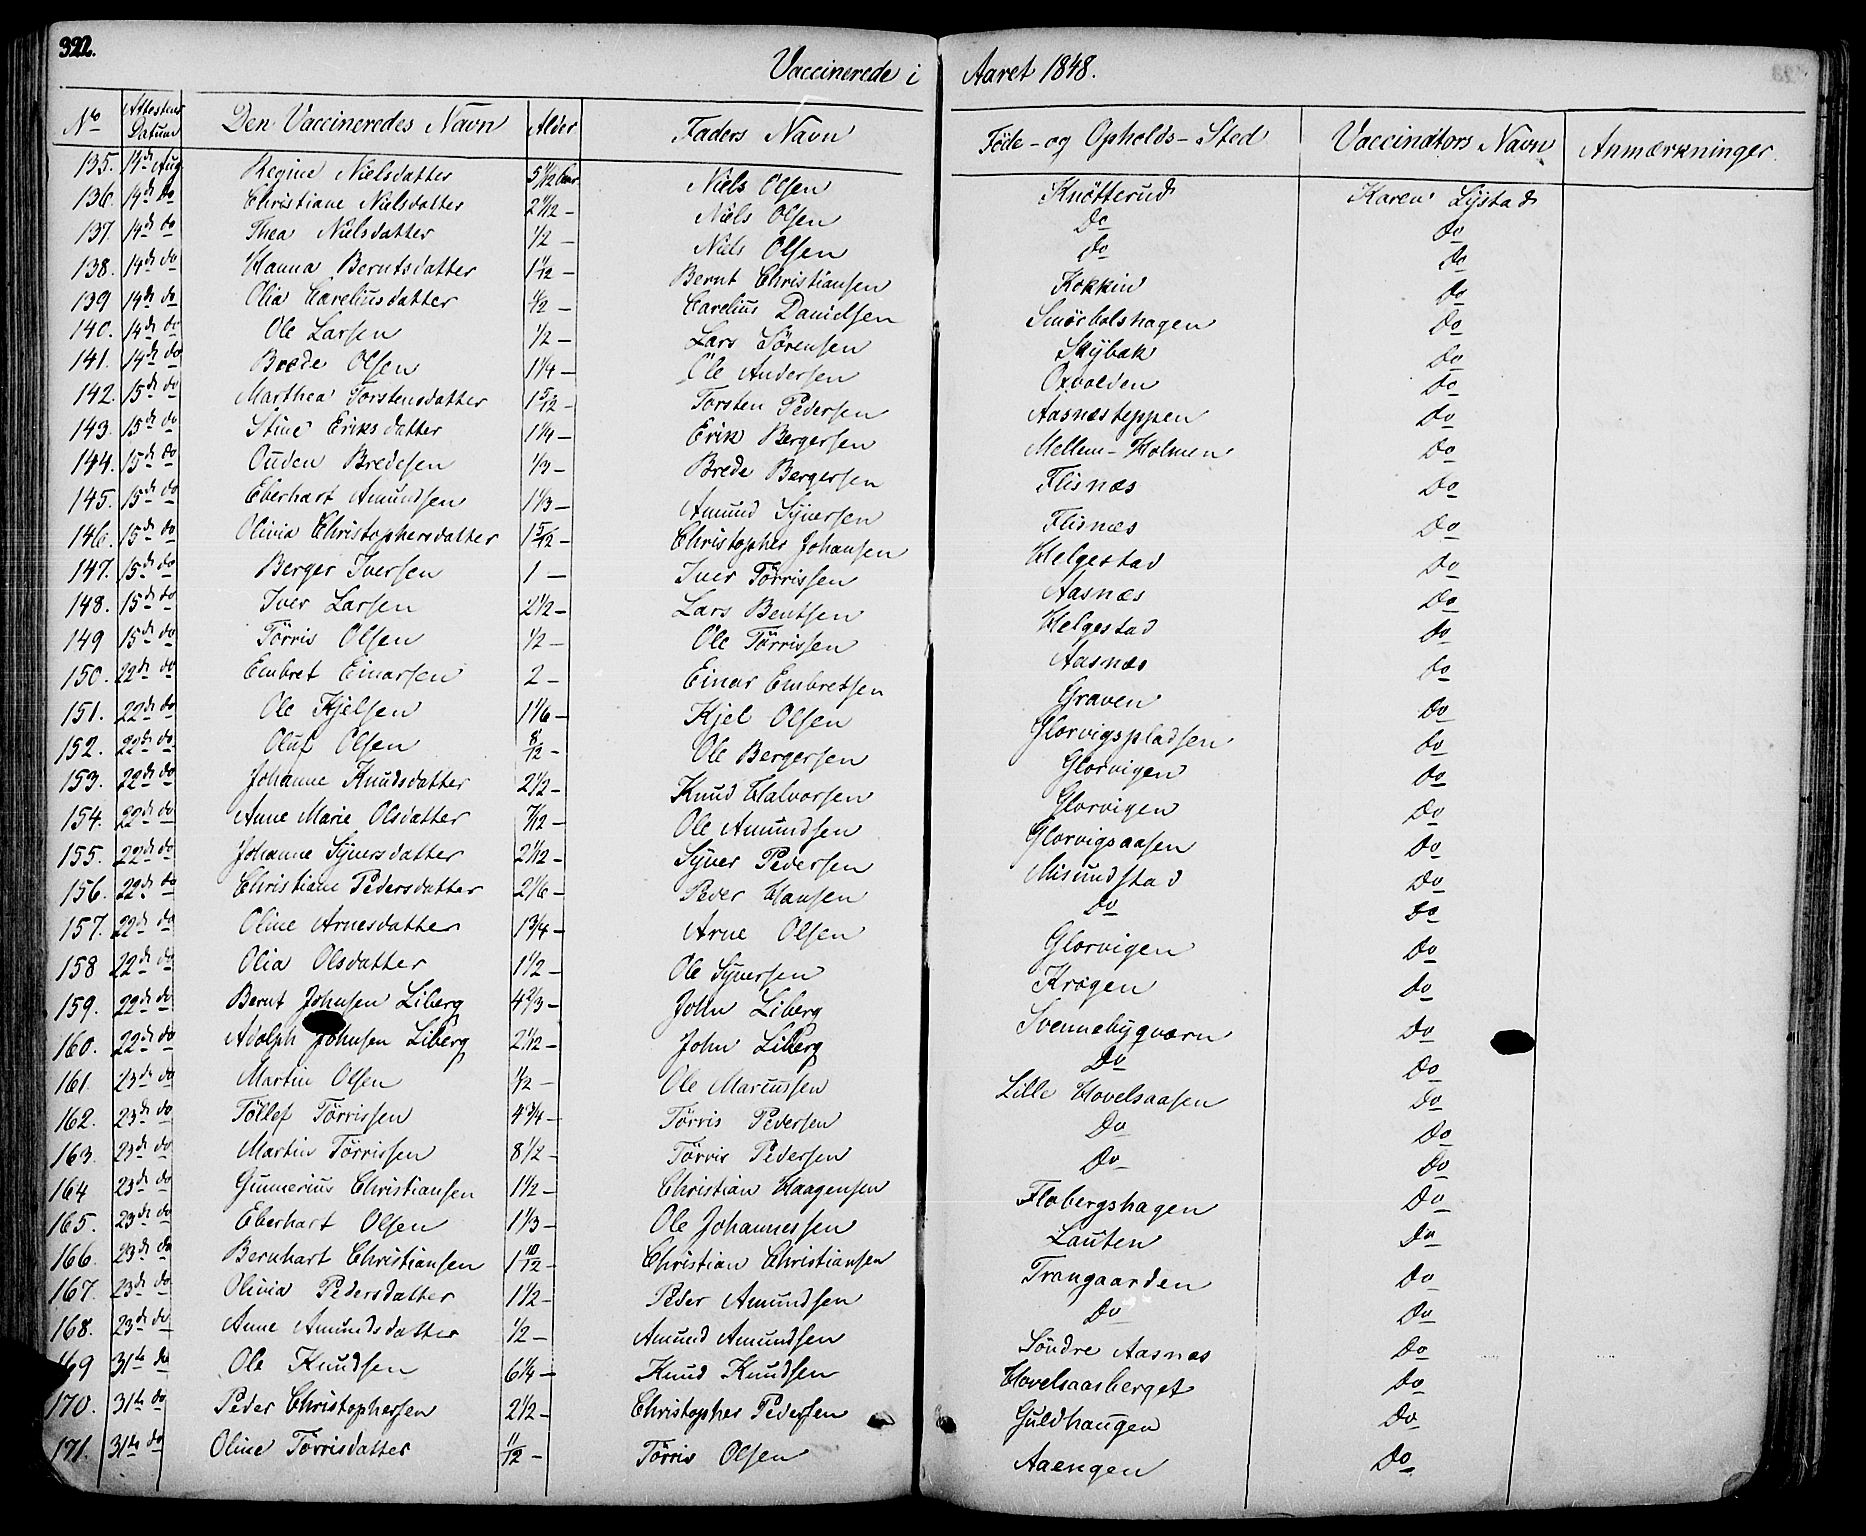 322.
Vaccinerede i Aaret 1848.
No Attestens Datum Den Vaccineredes Navn Alder Faders Navn Føde- og Opholds-Sted Vaccinators Navn Anmærkninger.
135. 14de Aug Regine Nielsdatter 5 11/12 Aar Niels Olsen Knøtterud Karen Lystad
136. 14de do Christiane Nielsdatter 2 11/12 - Niels Olsen Do Do
137. 14de do Thea Nielsdatter 1/2 - Niels Olsen Do Do
138. 14de do Hanna Berntsdatter 1 1/12 - Bernt Christiansen Kokkin Do
139 14de do Olia Careliusdatter 1/2 - Carelius Danielsen Smørbolshagen Do
140. 14de do Ole Larsen 1/2 - Lars Sørensen Skybak Do
141. 14de do Brede Olsen 1 1/4 - Ole Andersen Oxvolden Do
142. 15de do Marthea Torstensdatter 1 5/12 - Torsten Pedersen Aasnæsteppen Do
143. 15de do Stine Eriksdatter 1 1/4 - Erik Bergersen Mellem-Holmen Do
144. 15de do Ouden Bredesen 1/3 - Brede Bergersen Flisnæs Do
145. 15de do Eberhart Amundsen 1 1/3 - Amund Syversen Flisnæs Do
146. 15de do Olivia Christophersdatter 1 5/12 - Christopher Johansen Helgestad Do
147. 15de do Berger Iversen 1 - Iver Tørrissen Aasnæs Do
148. 15de do Iver Larsen 2 1/2 - Lars Bentsen Helgestad Do
149 15de do Tørris Olsen 1/2 - Ole Tørrissen Aasnæs Do
150. 22de do Embret Einarsen 2 - Einar Embretsen Graven Do
151. 22de do Ole Kjelsen 1 1/6 - Kjel Olsen Glorvigspladsen Do
152. 22de do Oluf Olsen 8/12 - Ole Bergersen Glorvigen Do
153. 22de do Johanne Knudsdatter 2 1/2 - Knud Halvorsen Glorvigen Do
154. 22de do Anne Marie Olsdatter 7/12 - Ole Amundsen Glorvigsaasen Do
155. 22de do Johanne Syversdatter 2 1/12 - Syver Pedersen Misundstad Do
156. 22de do Christiane Pedersdatter 2 1/6 - Peder Hansen Do Do
157. 22de do Oline Arnesdatter 1 3/4 - Arne Olsen Glorvigen Do
158 22de do Olia Olsdatter 1 1/2 - Ole Syversen Krogen Do
159. 22de do Bernt Johnsen Liberg 4 2/3 - John Liberg Svennebyqværn Do
160. 22de do Adolph Johnsen Liberg 2 1/12 - John Liberg Do Do
161. 23de do Martin Olsen 1/2 - Ole Marcussen Lille Hovelsaasen Do
162. 23de do Tøllef Tørrissen 4 3/4 - Tørris Pedersen Do Do
163. 23de do Martin Tørrissen 8 1/2 - Tørris Pedersen Do Do
164 23de do Gunnerius Christiansen 1 1/2 - Christian Haagensen Flobergshagen Do
165. 23de do Eberhart Olsen 1 1/3 - Ole Johannessen Lauten Do
166. 23de do Bernhart Christiansen 1 10/12 - Christian Christiansen Trangaarden Do
167. 23de do Olivia Pedersdatter 1 1/2 - Peder Amundsen Do Do
168. 23de do Anne Amundsdatter 1/2 - Amund Amundsen Søndre Aasnæs Do
169 31te do Ole Knudsen 6 1/4 - Knud Knudsen Hovelsaasberget Do
170. 31te do Peder Christophersen 2 1/2 - Christopher Pedersen Guldhaugen Do
171. 31te do Oline Tørrisdatter 11/12 - Tørris Olsen Aaengen Do